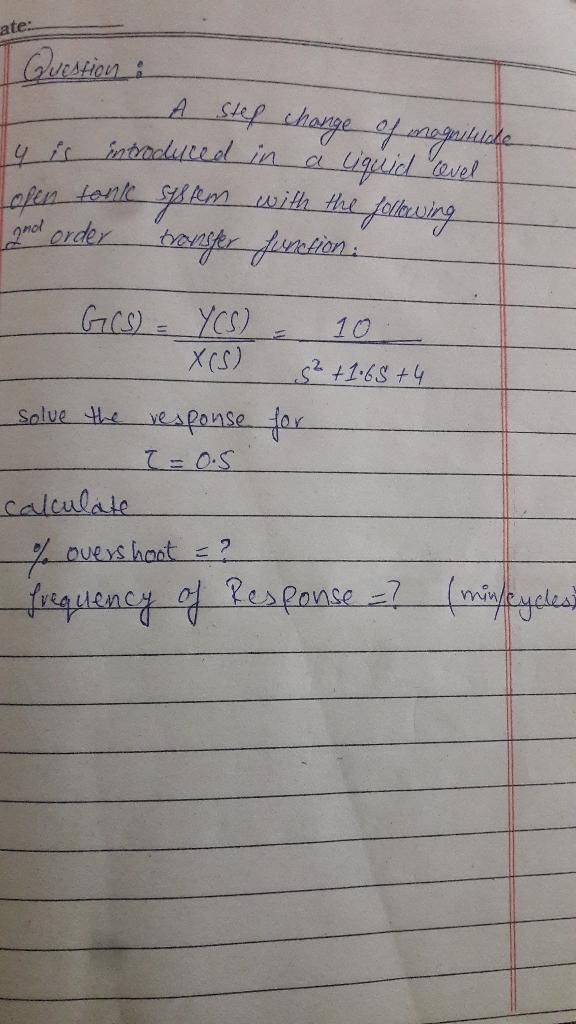 ate:
Question :
A step change of magnitude
4 is introduced in a liquid level
open tank system with the following
2nd order transfer function:
G(S) = Y(S) / X(S) = 10 / S² +1.6S +4
solve the response for
τ = 0.5
calculate
% overshoot = ?
frequency of Response =? (min/cycles)